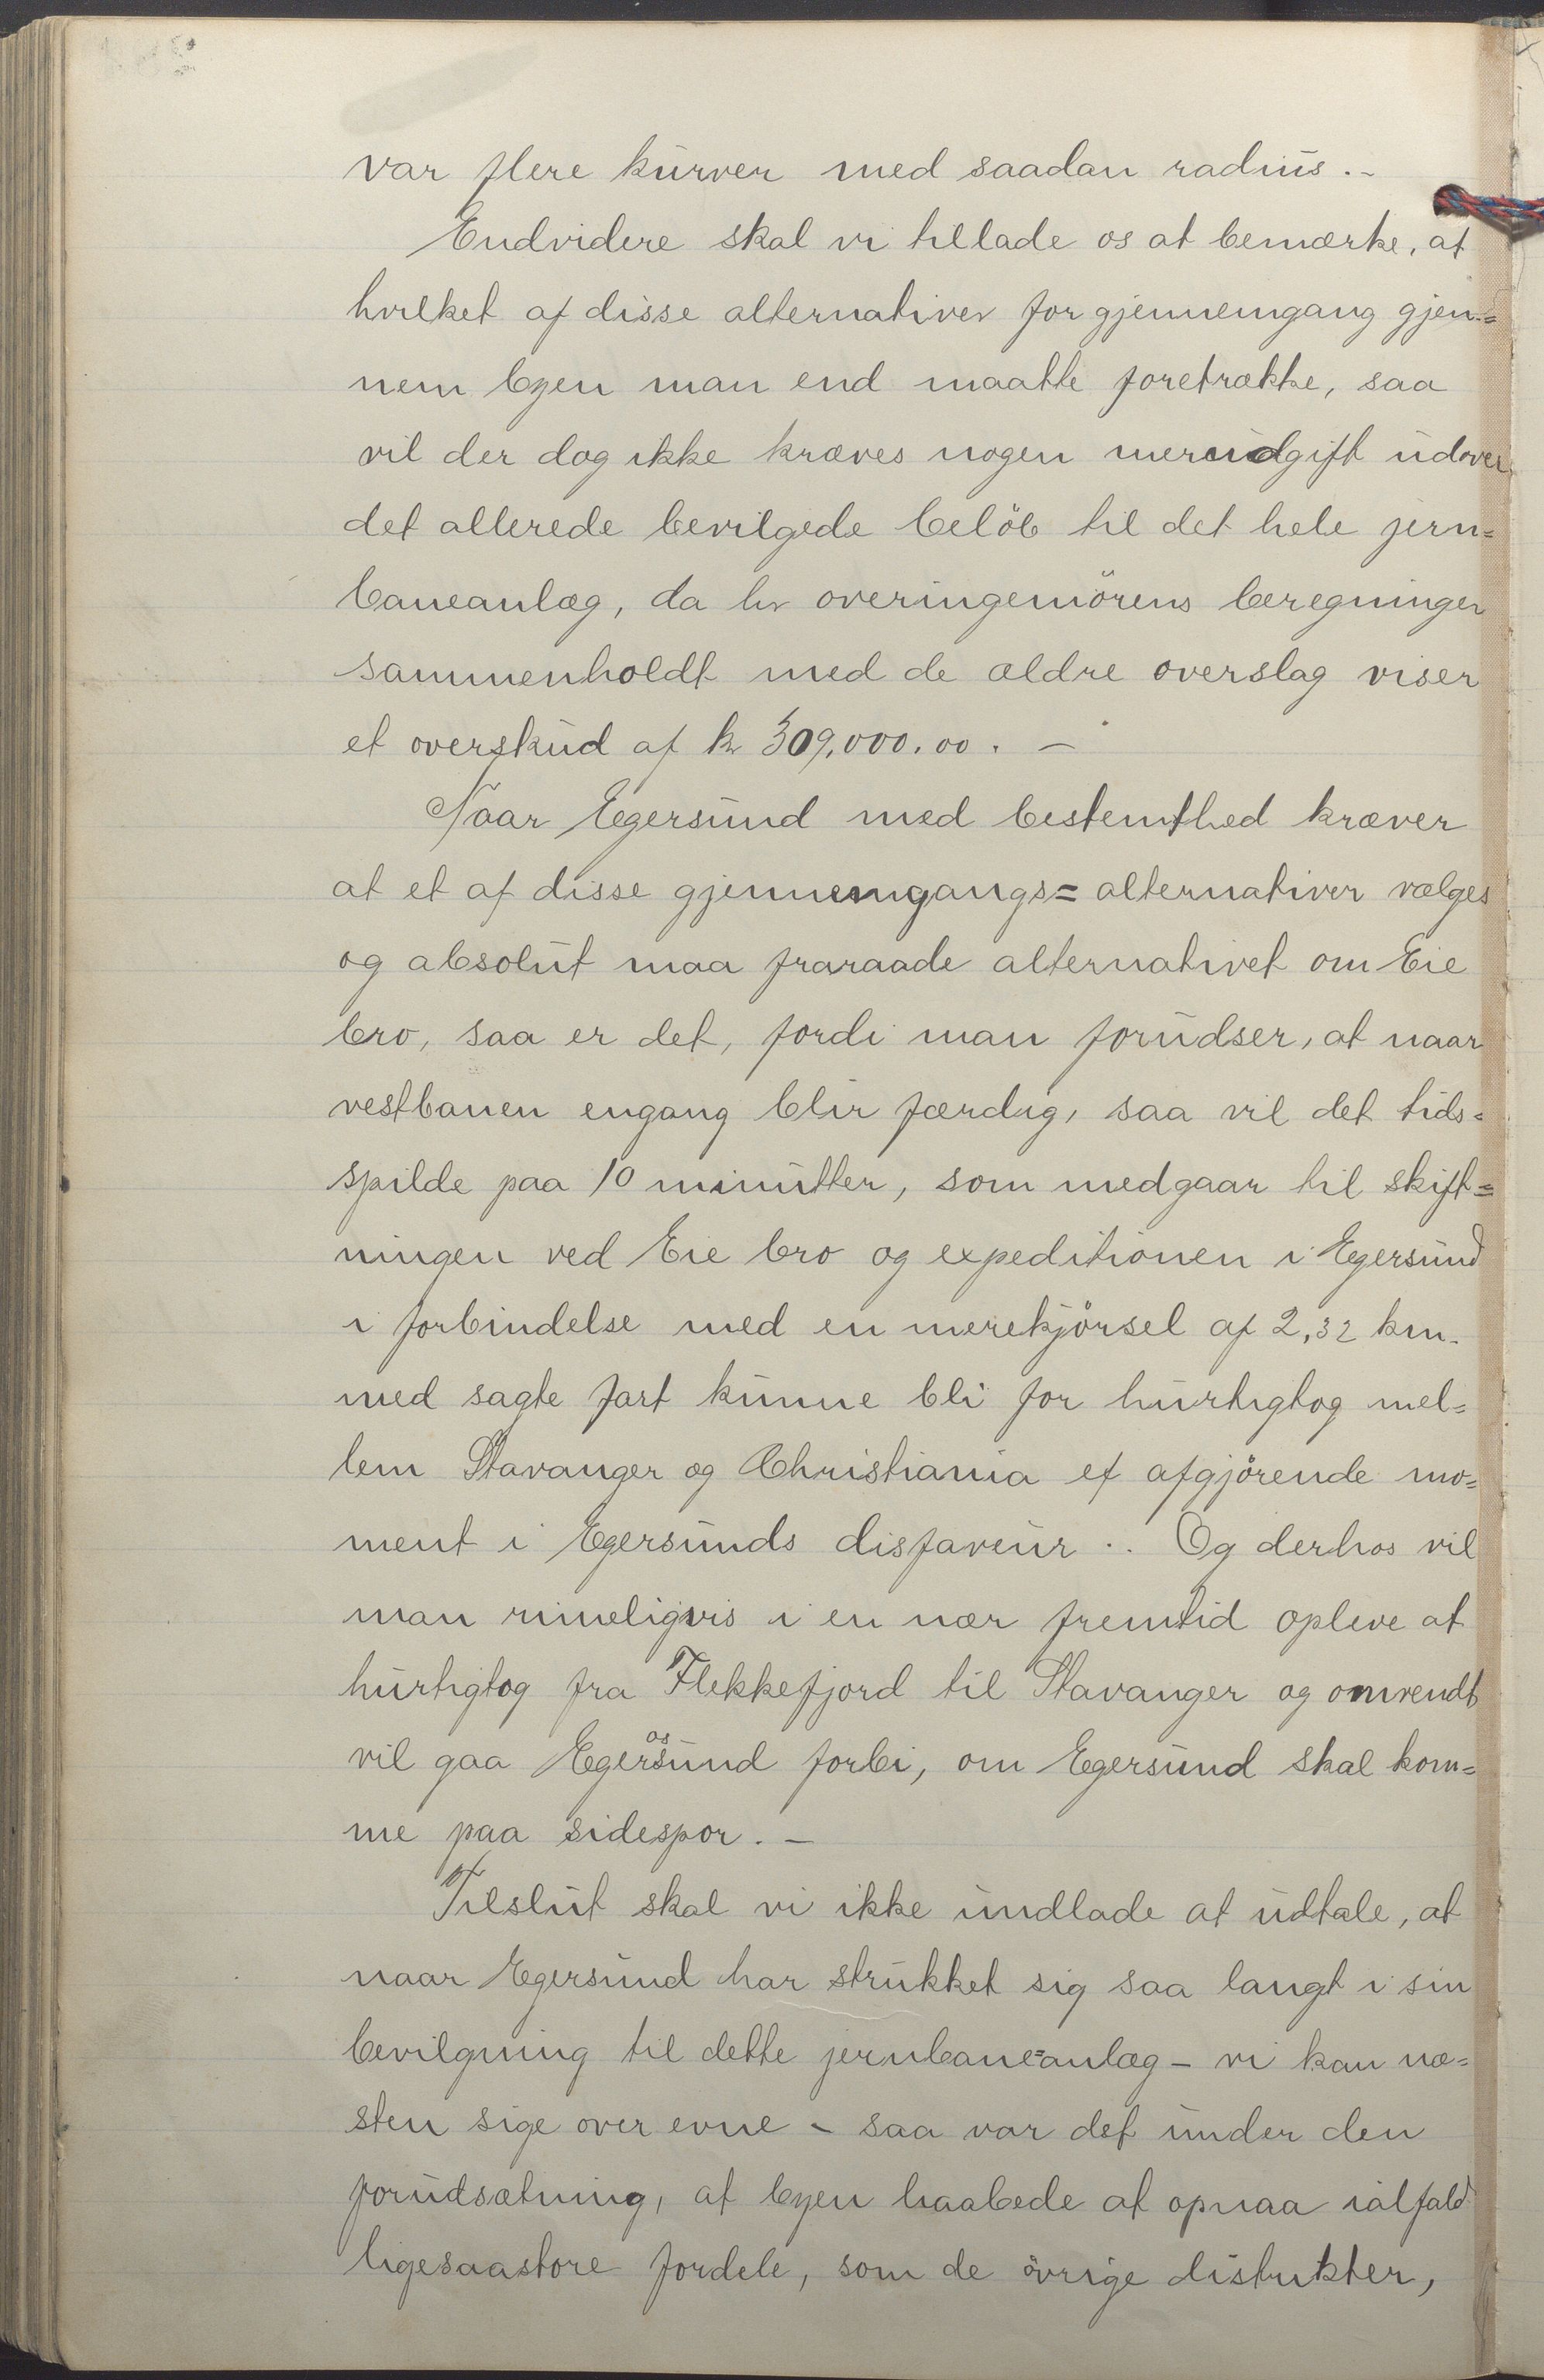 var flere kurver med saadan radius.-
Endvidere skal vi tillade os at bemærke, at
hvilket af disse alternativer for gjennemgang gjen=
nem byen man end maatte foretrække, saa
vil der dog ikke kræves nogen merudgift udover
det allerede bevilgede beløb til det hele jern=
baneanlæg, da hr overingeniørens beregninger
sammenholdt med de ældre overslag viser
et overskud af kr 309,000.00. -
Naar Egersund med bestemthed kræver
at et af disse gjennemgangs= alternativer vælges
og absolut maa fraraade alternativet om Eie
bro, saa er det, fordi man forudser, at naar
vestbanen engang blir færdig, saa vil det tids=
spilde paa 10 minutter, som medgaar til skift=
ningen ved Eie bro og expeditionen i Egersund
i forbindelse med en merekjørsel af 2,32 km.
med sagte fart kunne bli for hurtigtog mel=
lem Stavanger og Christiania et afgjørende mo=
ment i Egersunds disfaveur.. Og derhos vil
man rimeligvis i en nær fremtid opleve at
hurtigtog fra Flekkefjord til Stavanger og omvendt
vil gaa Egersund os forbi, om Egersund skal kom=
me paa sidespor. -
Tilslut skal vi ikke undlade at udtale, at
naar Egersund har strukket sig saa langt i sin
bevilgning til dette jernbane=anlæg - vi kan næ=
sten sige over evne - saa var det under den
forudsætning, at byen haabede at opnaa ialfald
ligesaastore fordele, som de øvrige distrikter,